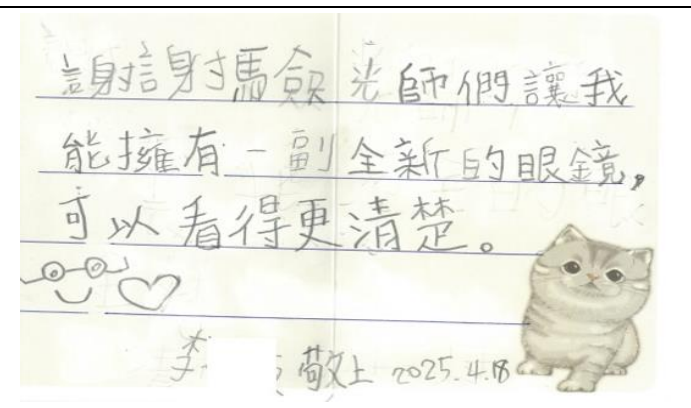 謝謝馬僉光師們讓我
能擁有一副全新的眼鏡,
可以看得更清楚。
李 敬上 2025.4.18